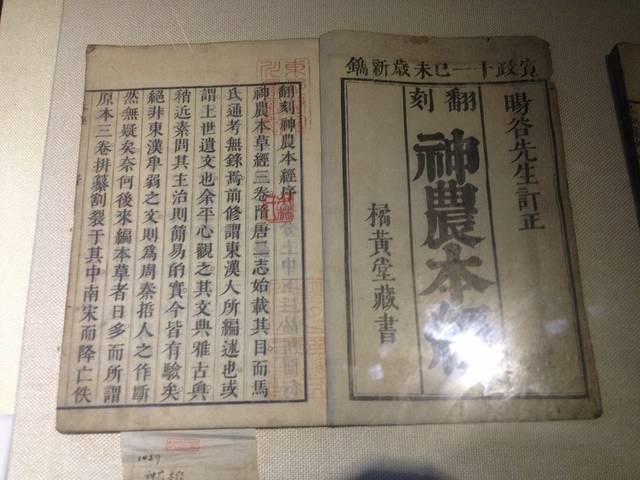 寛政十一巳未歲新鐫
暘谷先生訂正
翻刻
神農本經
橘黃堂藏書
翻刻神農本經序
神農本草經三卷隋唐二志始載其目而馬
氏通考無錄焉前修謂東漢人所編述也或
謂上世遺文也余平心觀之其文典雅古奧
稍近素問其主治則簡易的實今皆有驗矣
絕非東漢卑弱之文則爲周秦哲人之作斷
然無疑矣奈何後來編本草者日多而所謂
原本三卷排摹割裂于其中南宋而降亡佚
1429